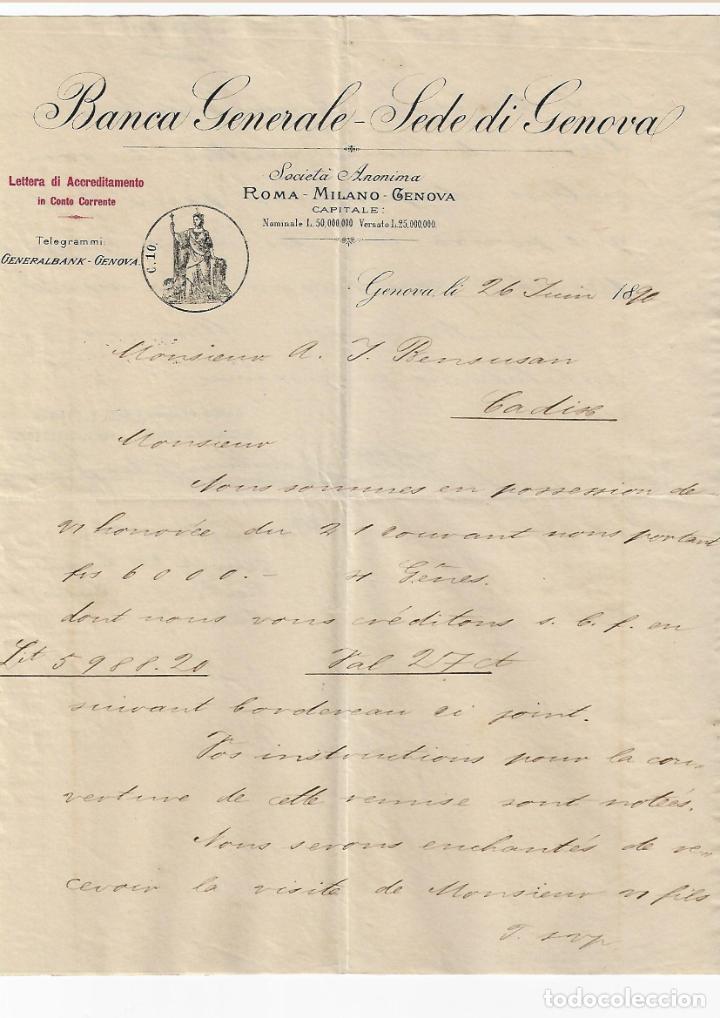 Banca Generale - Sede di Genova
Società Anonima
ROMA - MILANO - GENOVA
CAPITALE:
Nominale L. 50,000,000 Versato L. 25,000,000.
Lettera di Accreditamento
in Conto Corrente
Telegrammi:
GENERALBANK - GENOVA.
C. 10.
Genova, li 26 Juin 1890
Monsieur A. J. Bensusan
Cadix
Monsieur
Nous sommes en possession de
v/ honorée du 21 courant nous portant
frs 6000.- s/ Gênes.
dont nous vous créditons s. b. f. en
Lit 5988.20 Val 27 ct
suivant bordereau ci joint.
Vos instructions pour la cou-
verture de cette remise sont notées.
Nous serons enchantés de re-
cevoir la visite de Monsieur v/ fils
T. svp.
todocoleccion